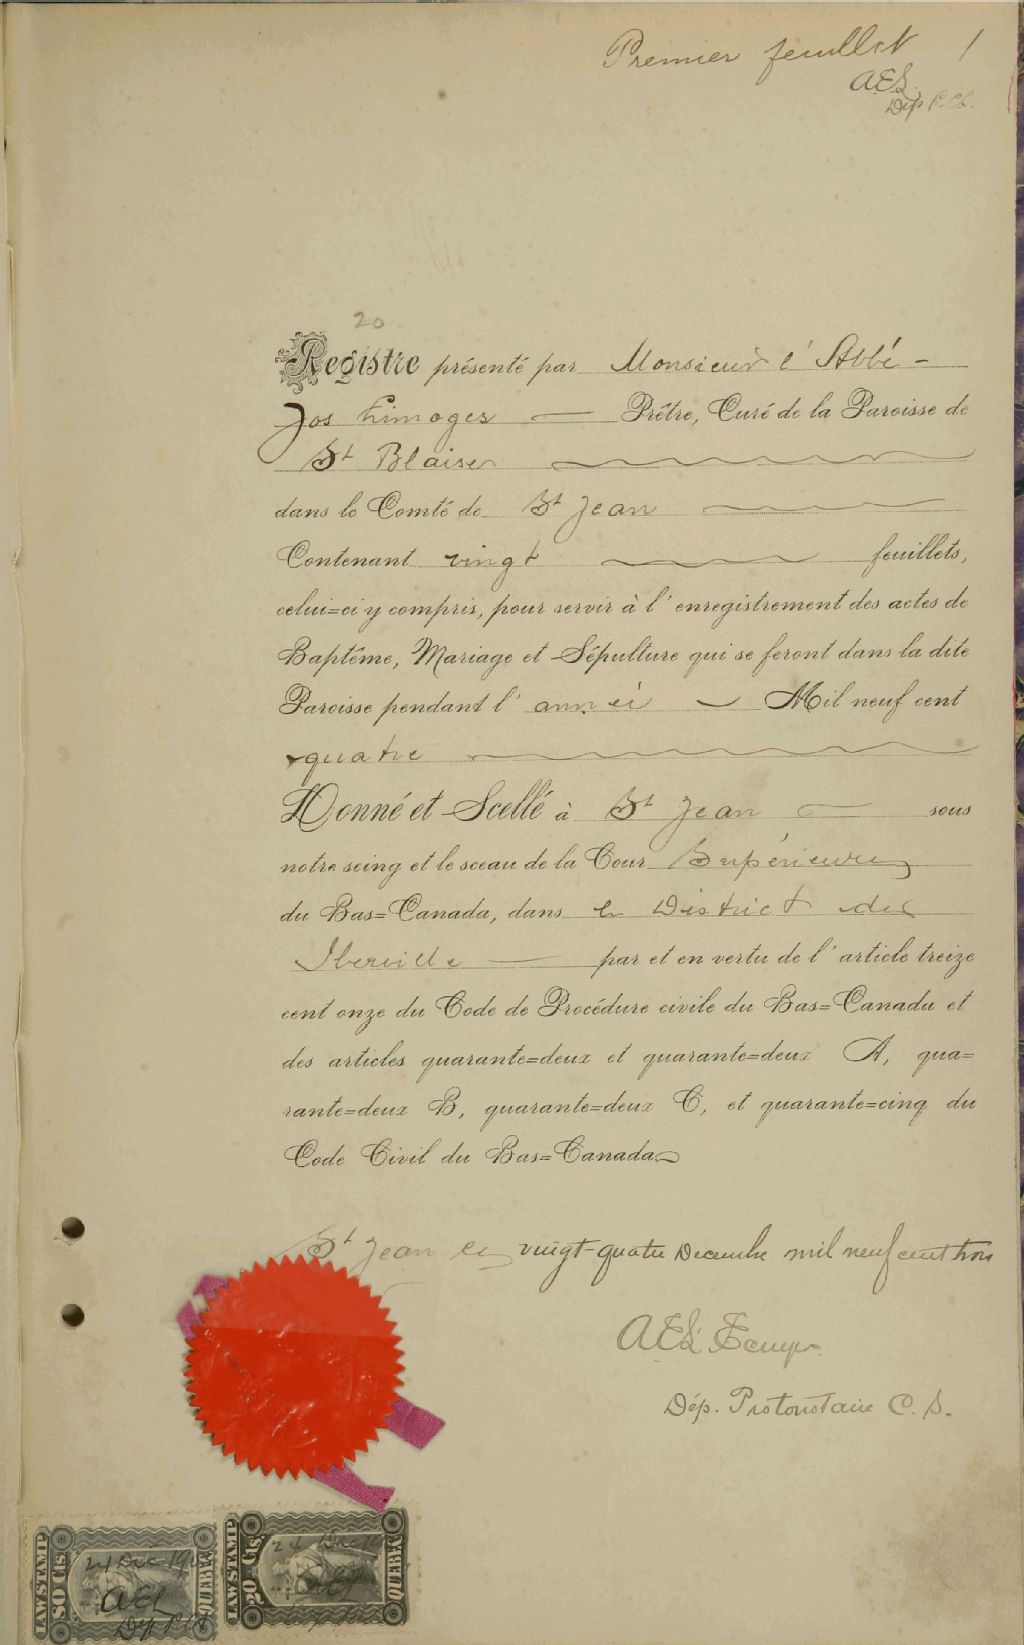 Premier feuillet 1
AEL
Dép P.C.S.
20
Registre présenté par Monsieur l'Abbé –
Jos Limoges — Prêtre, Curé de la Paroisse de
St Blaise
dans le Comté de St Jean
Contenant vingt feuillets,
celui=ci y compris, pour servir à l'enregistrement des actes de
Baptême, Mariage et Sépulture qui se feront dans la dite
Paroisse pendant l'année Mil neuf cent
quatre
Donné et Scellé à St Jean sous
notre seing et le sceau de la Cour Supérieure
du Bas=Canada, dans le District de
Iberville — par et en vertu de l'article treize
cent onze du Code de Procédure civile du Bas=Canada et
des articles quarante=deux et quarante=deux A, qua=
rante=deux B, quarante=deux C, et quarante=cinq du
Code Civil du Bas=Canada
St Jean le vingt-quatre Decembre mil neuf cent trois
AEL
Dép. Protonotaire C. S.
LAW STAMP
80 Cts.
QUEBEC
24 Dec 190
AEL
Dép P.C.S
LAW STAMP
20 Cts.
QUEBEC
24 Dec 190
AEL